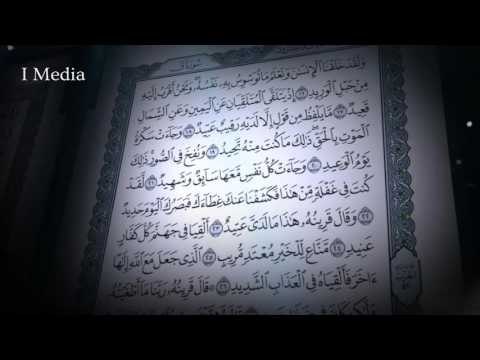 I Media
سورة ق
وَلَقَدْ خَلَقْنَا الْإِنسَٰنَ وَنَعْلَمُ مَا تُوَسْوِسُ بِهِۦ نَفْسُهُۥ ۖ وَنَحْنُ أَقْرَبُ إِلَيْهِ
مِنْ حَبْلِ الْوَرِيدِ ١٦ إِذْ يَتَلَقَّى الْمُتَلَقِّيَانِ عَنِ الْيَمِينِ وَعَنِ الشِّمَالِ
قَعِيدٌ ١٧ مَّا يَلْفِظُ مِن قَوْلٍ إِلَّا لَدَيْهِ رَقِيبٌ عَتِيدٌ ١٨ وَجَآءَتْ سَكْرَةُ
الْمَوْتِ بِالْحَقِّ ۖ ذَٰلِكَ مَا كُنتَ مِنْهُ تَحِيدُ ١٩ وَنُفِخَ فِي الصُّورِ ۚ ذَٰلِكَ
يَوْمُ الْوَعِيدِ ٢٠ وَجَآءَتْ كُلُّ نَفْسٍ مَّعَهَا سَآئِقٌ وَشَهِيدٌ ٢١ لَّقَدْ
كُنتَ فِي غَفْلَةٍ مِّنْ هَٰذَا فَكَشَفْنَا عَنكَ غِطَآءَكَ فَبَصَرُكَ الْيَوْمَ حَدِيدٌ
٢٢ وَقَالَ قَرِينُهُۥ هَٰذَا مَا لَدَيَّ عَتِيدٌ ٢٣ أَلْقِيَا فِي جَهَنَّمَ كُلَّ كَفَّارٍ
عَنِيدٍ ٢٤ مَّنَّاعٍ لِّلْخَيْرِ مُعْتَدٍ مُّرِيبٍ ٢٥ الَّذِي جَعَلَ مَعَ اللَّهِ إِلَٰهًا
ءَاخَرَ فَأَلْقِيَاهُ فِي الْعَذَابِ الشَّدِيدِ ٢٦ قَالَ قَرِينُهُۥ رَبَّنَا مَآ أَطْغَيْتُهُۥ
وَلَٰكِن كَانَ فِي